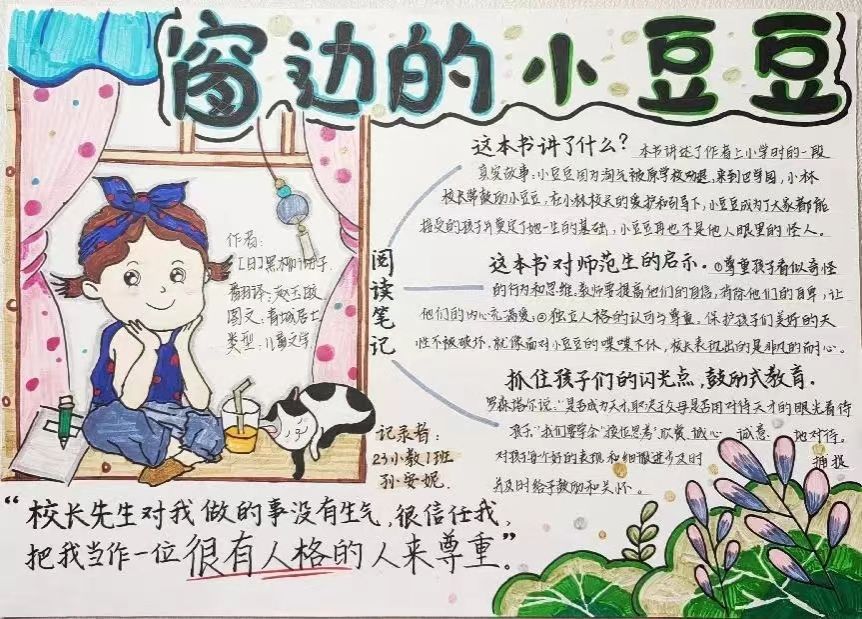 窗边的小豆豆
作者:
[日]黑柳彻子.
翻译:赵玉皎
图文:青城居士
类型:儿童文学.
阅读笔记
这本书讲了什么? 本书讲述了作者上小学时的一段
真实故事:小豆豆因为淘气被原学校劝退,来到巴学园,小林
校长笑鼓励小豆豆,在小林校长的爱护和引导下,小豆豆成为了大家都能
接受的孩子并奠定了她一生的基础,小豆豆再也不是他人眼里的怪人。
这本书对师范生的启示.①尊重孩子看似奇怪
的行为和思维.教师要提高他们的自信,消除他们的自卑,让
他们的内心充满爱;②独立人格的认可与尊重,保护孩子们美好的天
性不被破坏,就像面对小豆豆的喋喋不休,校长表现出的是非凡的耐心。
抓住孩子们的闪光点,鼓励式教育.
罗森塔尔说:"是否成为天才,取决于父母是否用对待天才的眼光看待
孩子."我们要学会"换位思考",欣赏、诚心 诚意 地对待。
对孩子每个好的表现和细微进步及时 捕捉
并及时给予鼓励和关怀。
记录者:
23小教1班
孙安妮.
"校长先生对我做的事没有生气,很信任我,
把我当作一位很有人格的人来尊重"。